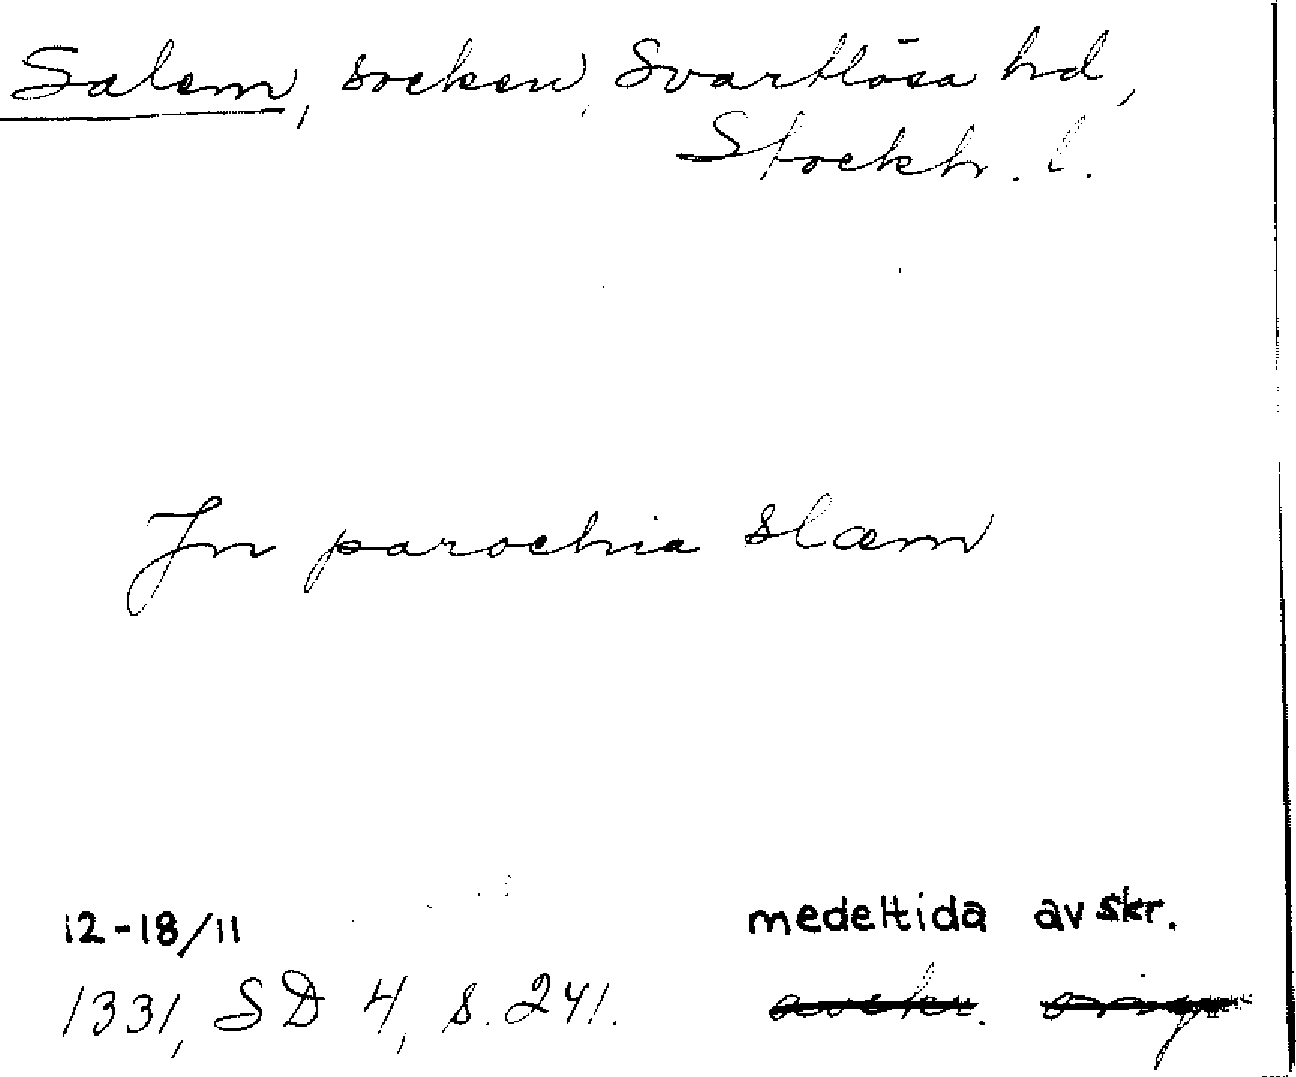 Salem, socken, Svartlösa hd,
Stockh. l.
Jn parochia slæm
12-18/11 medeltida avskr.
1331, SD 4, s. 241. avskr. orig